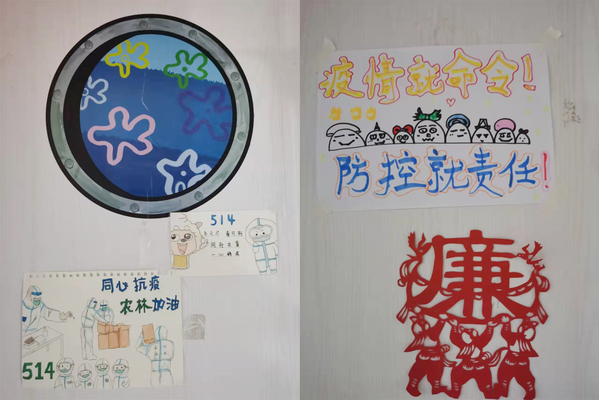 514
同心抗疫
农林加油
514
疫情就命令!
防控就责任!
廉